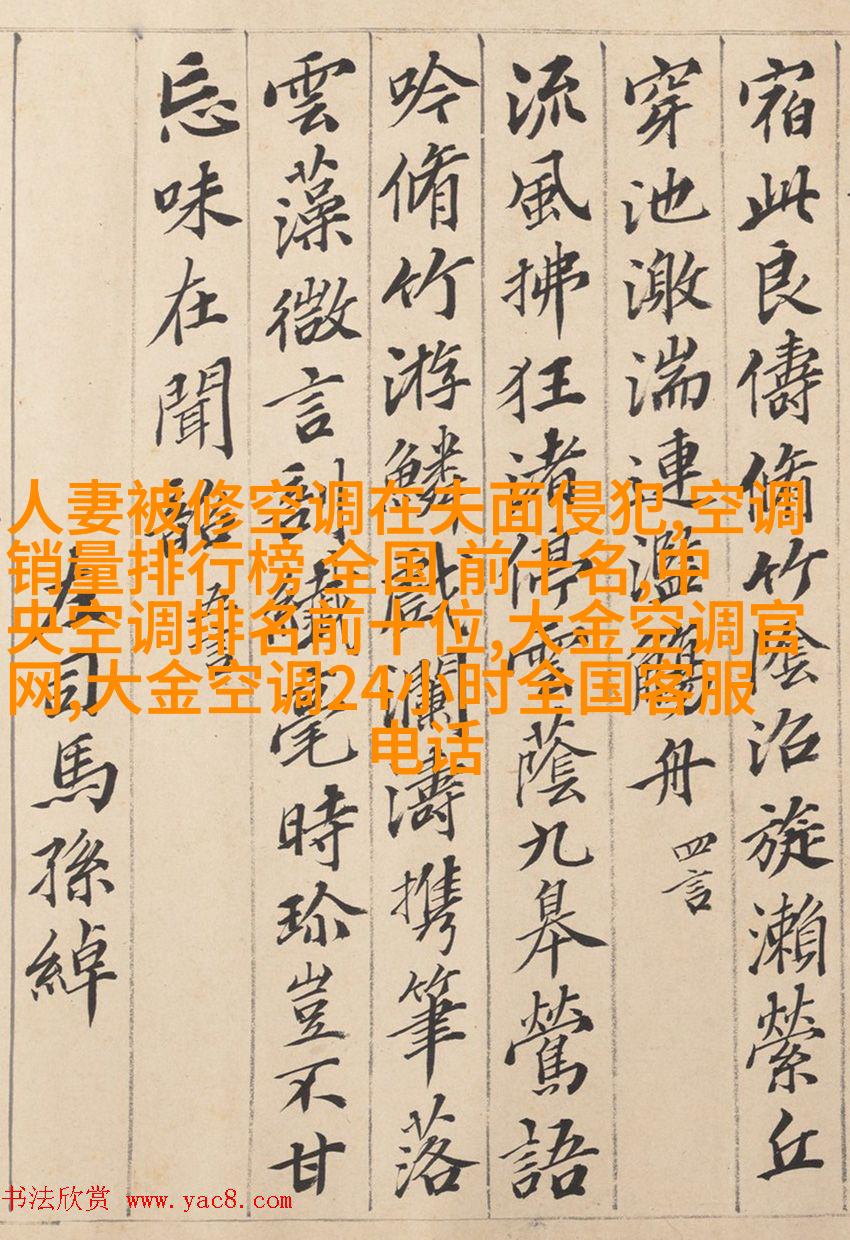 宿此良儔脩竹蔭沼旋瀨縈丘
穿池激湍連濫觴舟 四言
流風拂狂渚停雲蔭九皋鶯語
吟脩竹游鱗戲瀾濤携筆落
雲藻微言剖纖毫時珎豈不甘
忘味在聞韶 五言
左司馬孫綽
人妻被修空调在夫面侵犯,空调
销量排行榜 全国 前十名,中
央空调排名前十位,大金空调官
网,大金空调24小时全国客服
电话
书法欣赏 www.yac8.com